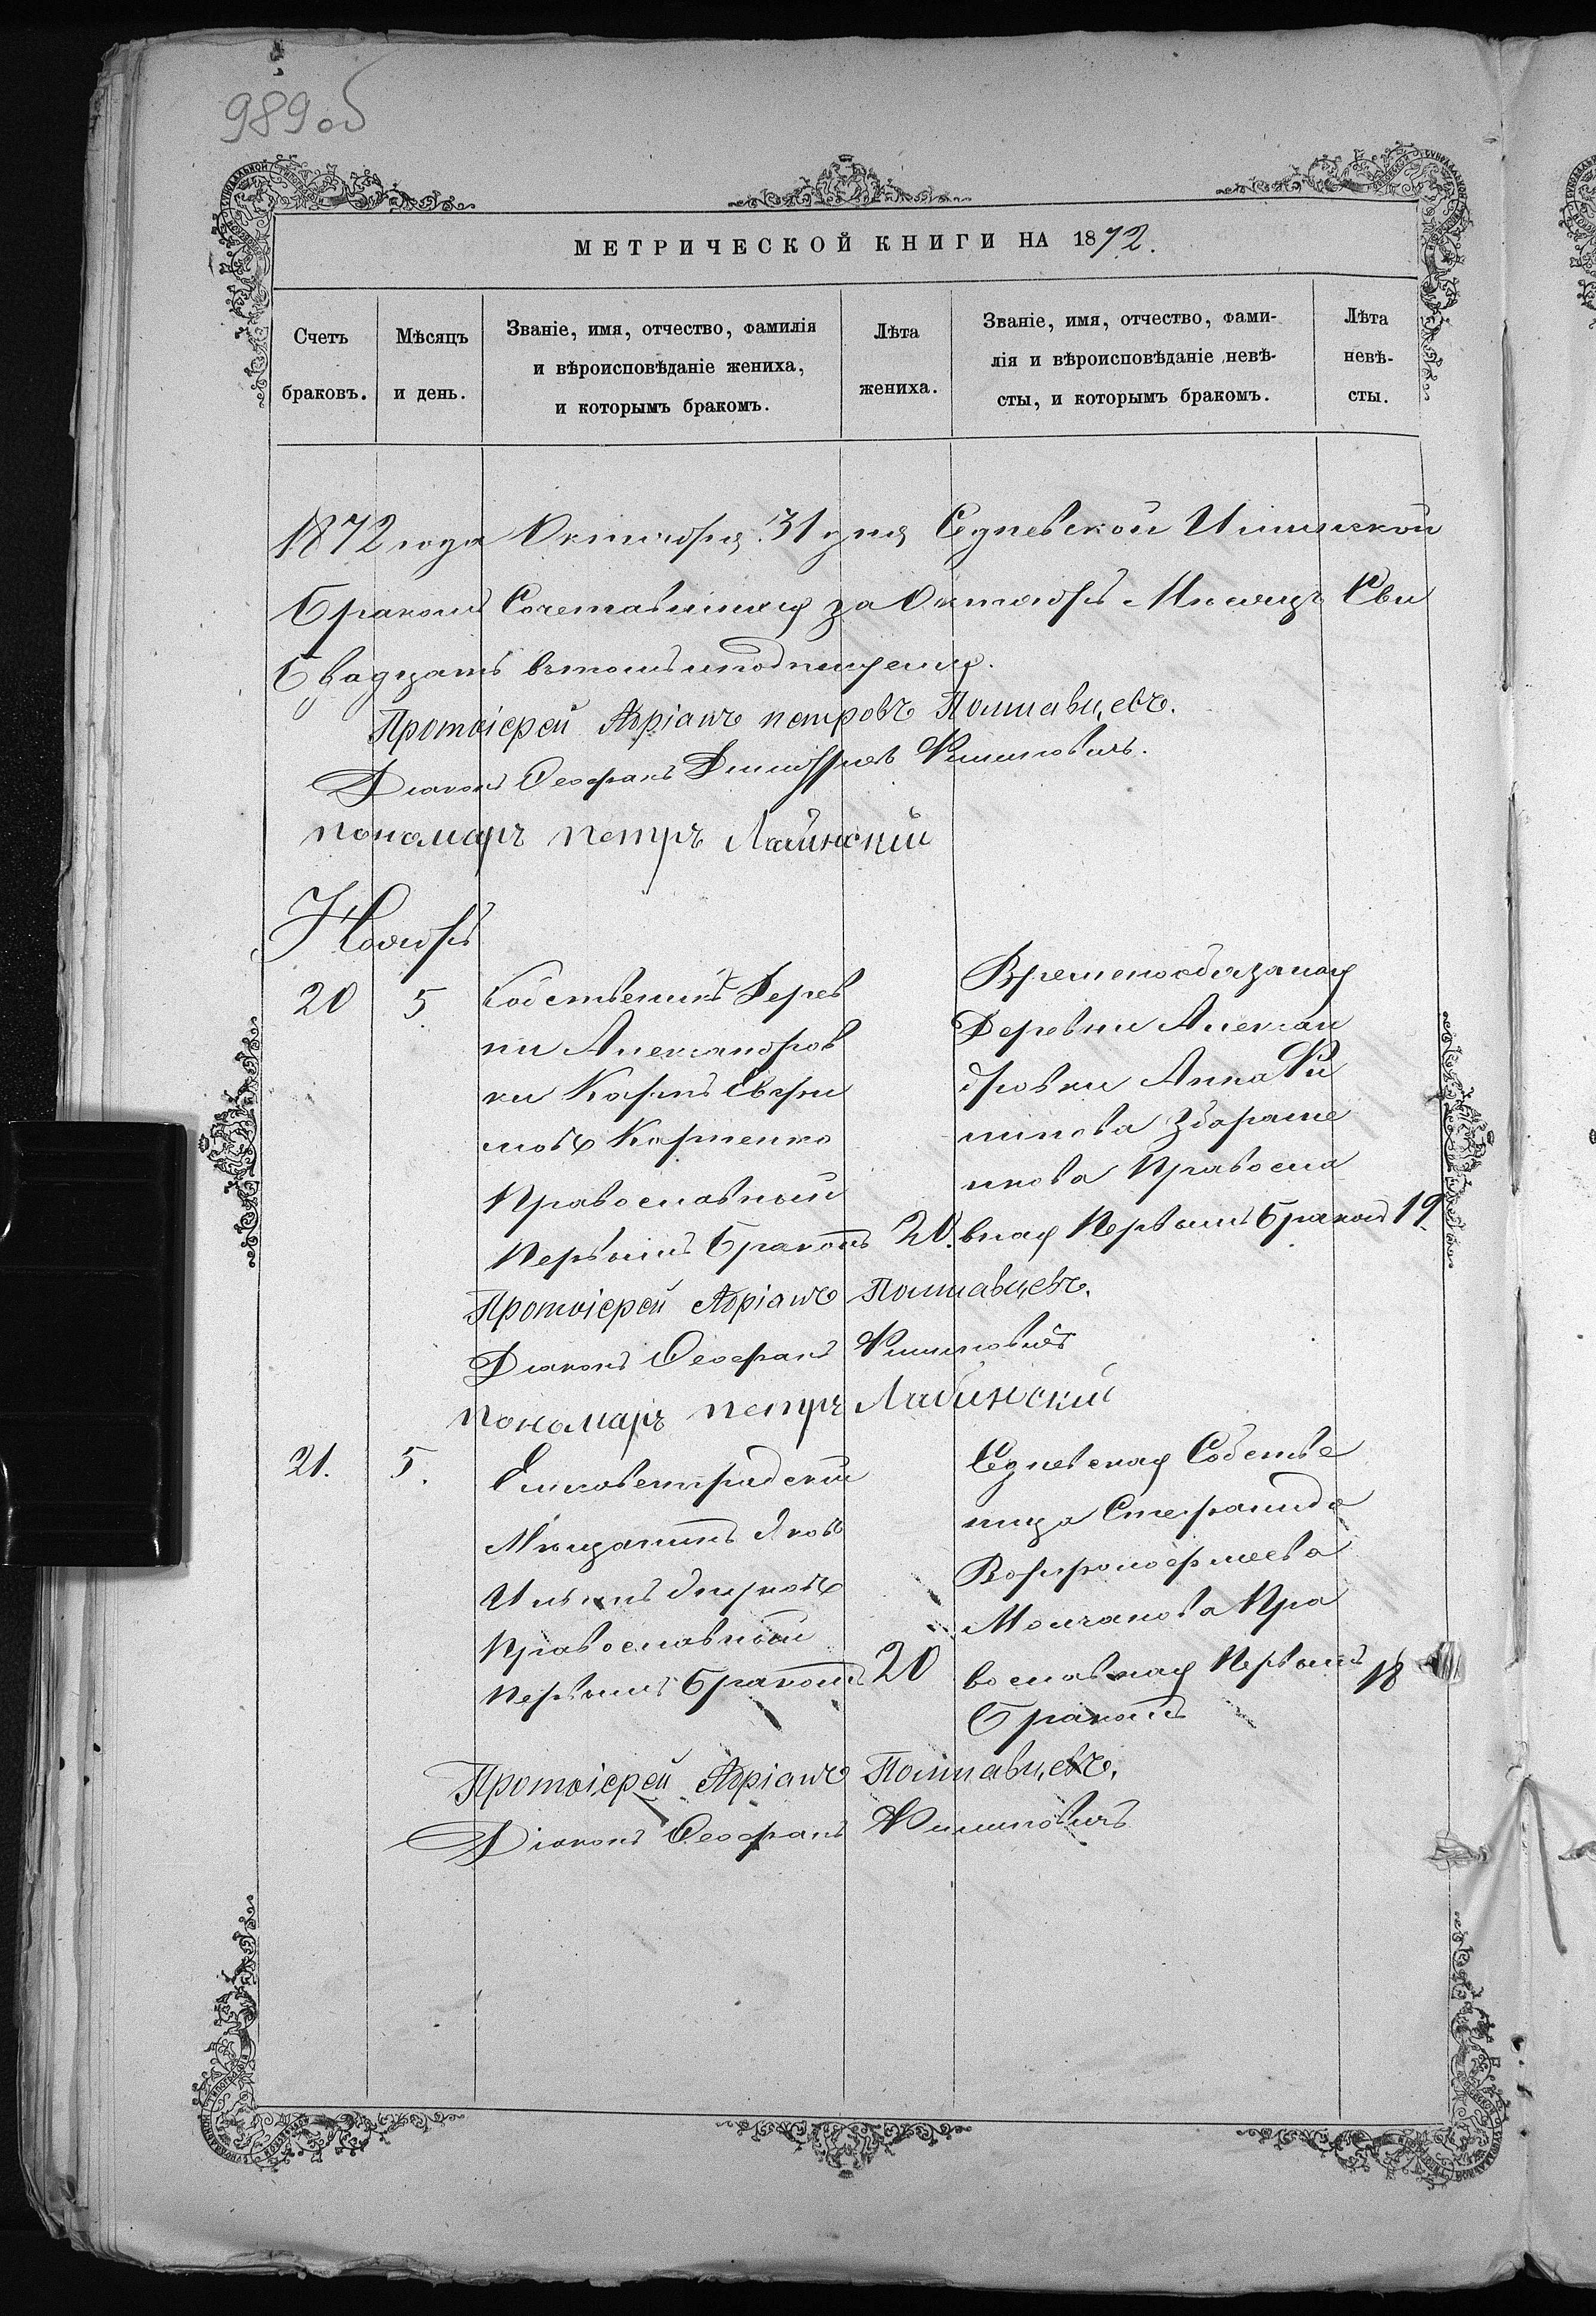 989об
МЕТРИЧЕСКОЙ КНИГИ НА 1872.
Счетъ браковъ.
Мѣсяцъ и день.
Званіе, имя, отчество, фамилія
и вѣроисповѣданіе жениха,
и которымъ бракомъ.
Лѣта жениха.
Званіе, имя, отчество, фами-
лія и вѣроисповѣданіе невѣ-
сты, и которымъ бракомъ.
Лѣта невѣ-
сты.
1872 года Октября 31 дня Седневской
Бракомъ Сочетавшихся за Октябрь Мѣсяцъ
въ томъ и подпишемся.
Протоіерей Адріанъ петровъ Полтавцевъ.
Діаконъ Ѳеофанъ Филиповичъ.
пономарь петръ
Ноябрь
20
5
Собственикъ Дерев
ни Александров
ки Карпъ Евфи
мовъ Карпенко
Православный
Первымъ Бракомъ
20.
Временнообязаная
Деревни Алексан
дровки Анна Фи
липова
Правосла
вная Первымъ бракомъ
19
Протоіерей Адріанъ Полтавцевъ.
Діаконъ Ѳеофанъ Филиповичъ
пономарь петръ
21.
5.
Елисаветградскій
Мѣщанинъ Яковъ
Ильинъ
Православный
первымъ бракомъ
20
Седневская Собстве
ница Стефанида
Варфоломеева
Молчанова Пра
вославная Первымъ
Бракомъ
18
Протоіерей Адріанъ Полтавцевъ.
Діаконъ Ѳеофанъ Филиповичъ